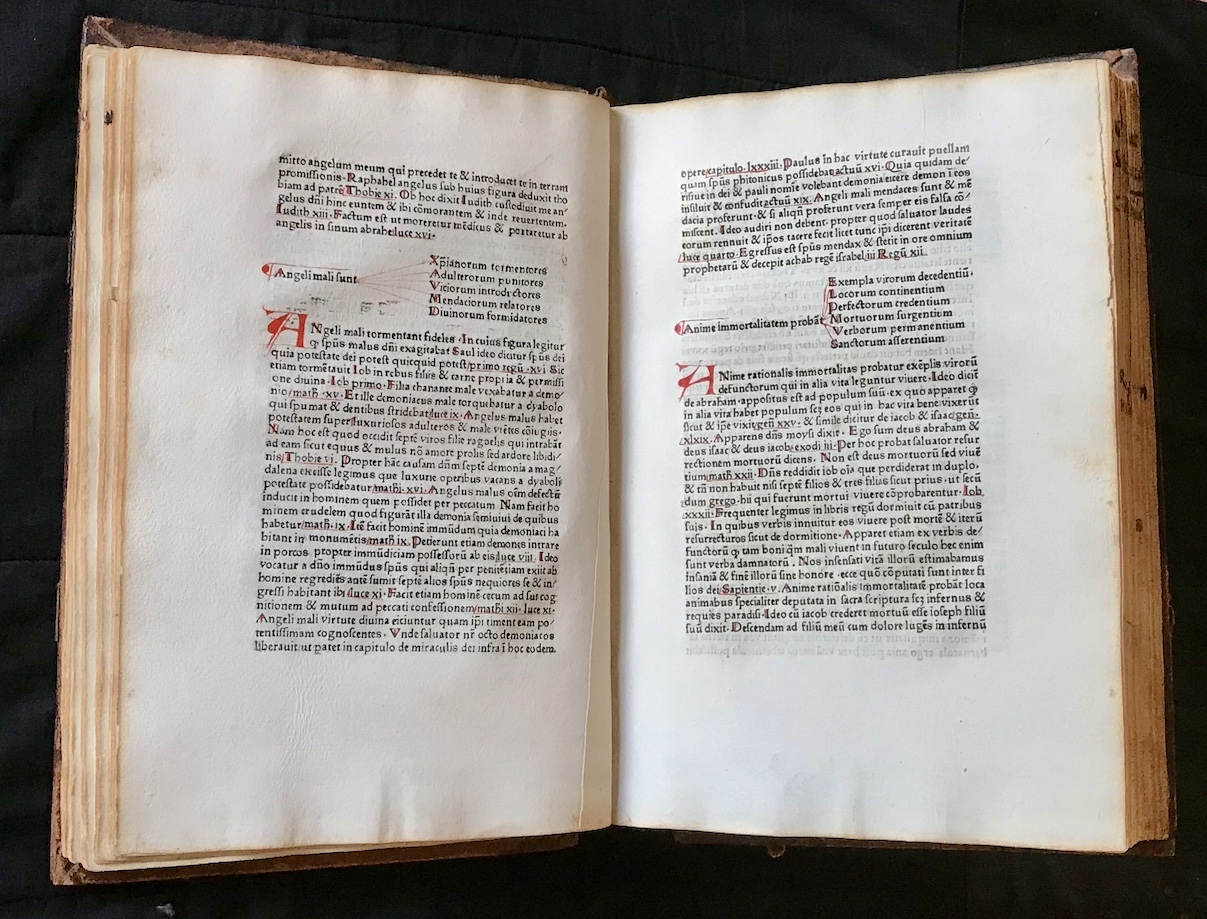 mitto angelum meum qui precedet te & introducet te in terram
promissionis. Raphahel angelus sub huius figura deduxit tho
biam ad patrē Thobie xi. Ob hoc dixit Iudith custodiuit me an/
gelus dn̄i hinc euntem & ibi cōmorantem & inde reuertentem.
Iudith xiii. Factum est ut moreretur mēdicus & portaretur ab
angelis in sinum abrahe luce xvi.
Angeli mali sunt
Xp̄ianorum tormentores
Adulterorum punitores
Viciorum introductores
Mendaciorum relatores
Diuinorum formidatores
ANgeli mali tormentant fideles. In cuius figura legitur
ꝙ sp̄us malus dn̄i exagitabat Saul ideo dicitur sp̄us dei
quia potestate dei potest quicquid potest/primo regū. xvi Sic
etiam tormētauit Iob in rebus filiis & carne propria & permissi
one diuina. Iob primo. Filia chananee male vexabatur a demo/
nio/math̄. xv. Et ille demoniacus male torquebatur a dyabolo
qui spumat & dentibus stridebat/luce ix. Angelus malus habet
potestatem super luxuriosos adulteros & male vtētes cōiugiis.
Nam hoc est quod occidit septē viros filie raguelis qui intrabāt
ad eam sicut equus & mulus nō amore prolis sed ardore libidi/
nis/Thobie vi. Propter hāc causam dn̄m septē demonia a mag/
dalena eiecisse legimus que luxurie operibus vacans a dyaboli
potestate possidebatur/math̄. xvi. Angelus malus oīm defectū
inducit in hominem quem possidet per peccatum Nam facit ho
minem crudelem quod figurāt illa demonia seuiui de quibus
habetur/math̄. ix. Itē facit hominē immūdum quia demoniaci ha
bitant in monumētis/math̄ ix. Petierunt etiam demones intrare
in porcos propter immūdiciam possessorū ab eis/luce viii. Ideo
vocatur a dn̄o immūdus sp̄us qui aliqn̄ per penitētiam exiit ab
homine regrediēs antē sumit septē alios sp̄us nequiores se & in/
gressi habitant ibi/luce xi. Facit etiam hominē cecum ad sui cog
nitionem & mutum ad peccati confessionem/mathi xii. luce xi.
Angeli mali virtute diuina eiciuntur quam ip̄i timent eam po/
tentissimam cognoscentes. Vnde saluator nr̄ octo demoniacos
liberauit ut patet in capitulo de miraculis dei infra ī hoc eodem
opere/capitulo. lxxxiii. Paulus in hac virtute curauit puellam
quam sp̄us phitonicus possidebat/actuū xvi. Quia quidam de/
risiue in dei & pauli nomīe volebant demonia eicere demon ī eos
insiluit & confudit/actuū xix. Angeli mali mendaces sunt & mē
dacia proferunt. & si aliqn̄ proferunt vera semper eis falsa cō/
miscent. Ideo audiri non debent. propter quod saluator laudes
eorum rennuit & ip̄os tacere fecit licet tunc ip̄i dicerent veritatē
/luce quarto. Egressus est sp̄us mendax & stetit in ore omnium
prophetarū & decepit achab regē israhel/iii Regū xii.
Anime immortalitatem probāt
Exempla virorum decedentiū.
Locorum continentium
Perfectorum credentium
Mortuorum surgentium
Verborum permanentium
Sanctorum asserentium
ANime rationalis immortalitas probatur exēplis virorū
defunctorum qui in alia vita leguntur viuere. Ideo dicit̄
de abraham. appositus est ad populum suū. ex quo apparet ꝙ
in alia vita habet populum scȝ eos qui in hac vita bene vixerūt
sicut & ip̄e vixit/gen̄ xxv. & simile dicitur de iacob & isaac/gen̄.
/xlxix. Apparens dn̄s moysi dixit. Ego sum deus abraham &
deus isaac & deus iacob/exodi iii. Per hoc probat saluator resur
rectionem mortuorū dicens. Non est deus mortuorū sed viuē
tium/math xxii. Dn̄s reddidit iob oīa que perdiderat in duplo,
& tn̄ non habuit nisi septē filios & tres filias sicut prius. ut secū
dum grego. hii qui fuerunt mortui viuere cōprobarentur. Iob
/xxxii. Frequenter legimus in libris regū dormiuit cū patribus
suis. In quibus verbis innuitur eos viuere post mortē & iterū
resurrecturos sicut de dormitione. Apparet etiam ex verbis de/
functorū ꝙ tam boni qm̄ mali viuent in futuro seculo hec enim
sunt verba damnatorū. Nos insensati vitā illorū estimabamus
insaniā & finē illorū sine honore. ecce quō cōputati sunt inter fi
lios dei/Sapientie. v. Anime ratiōalis immortalitatē probāt loca
animabus specialiter deputata in sacra scriptura scȝ infernus &
requies paradisi. Ideo cū iacob crederet mortuū esse ioseph filiū
suū dixit. Descendam ad filiū meū cum dolore lugēs in infernū